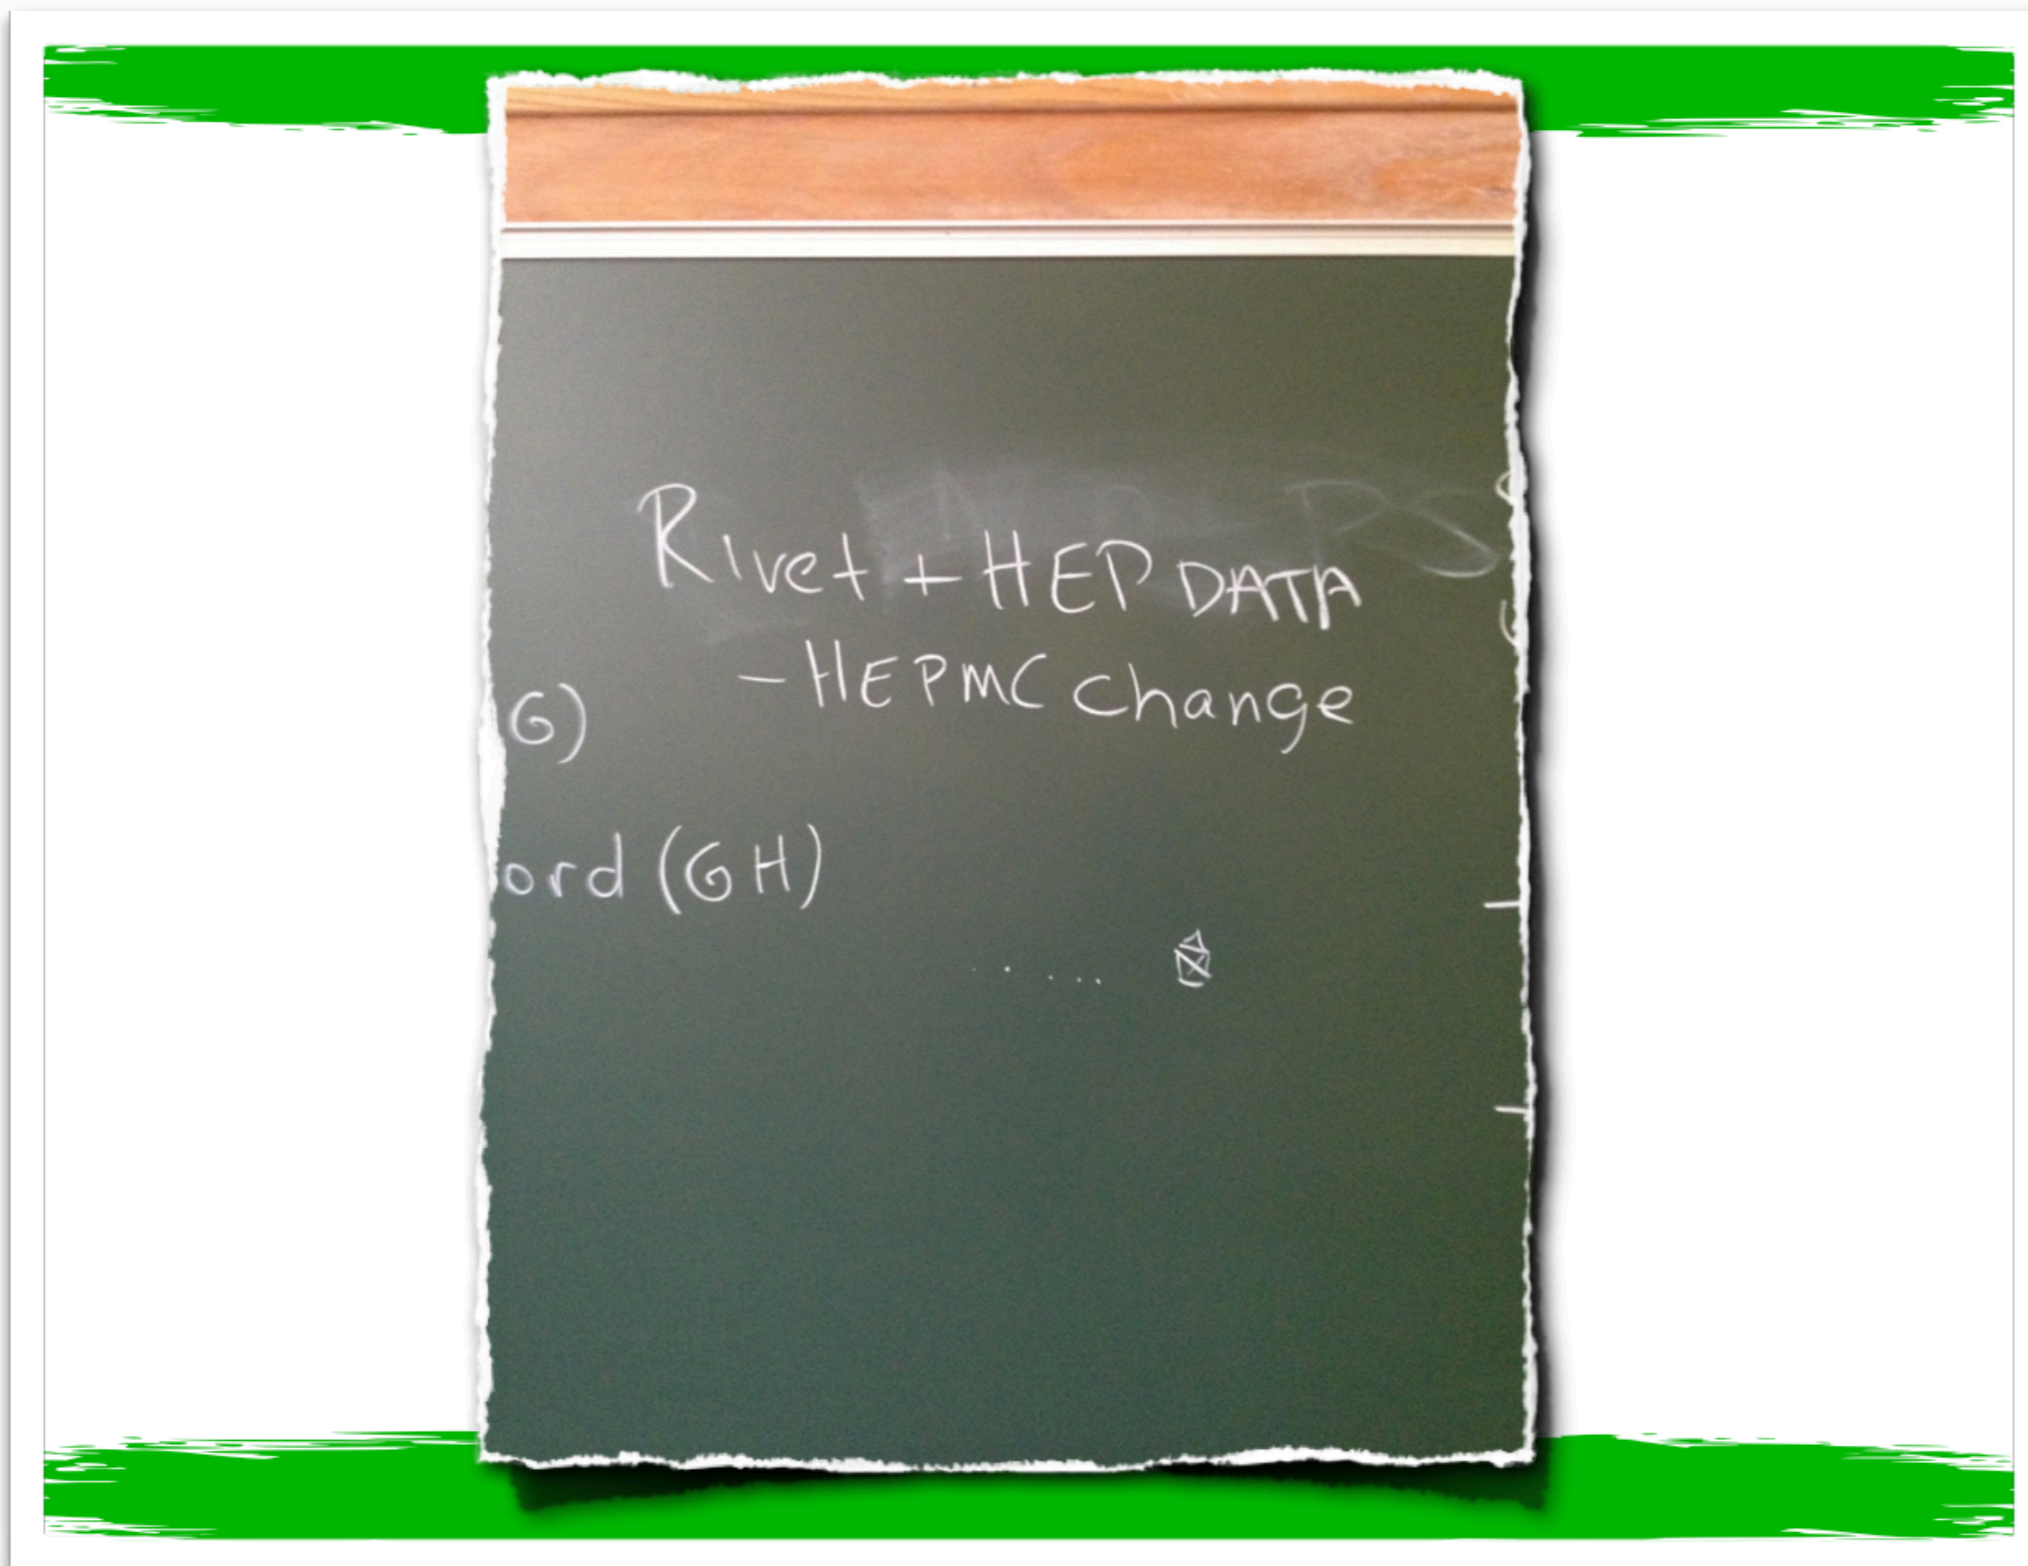 Rivet + HEP DATA
- HEPMC change
G)
ord (GH)